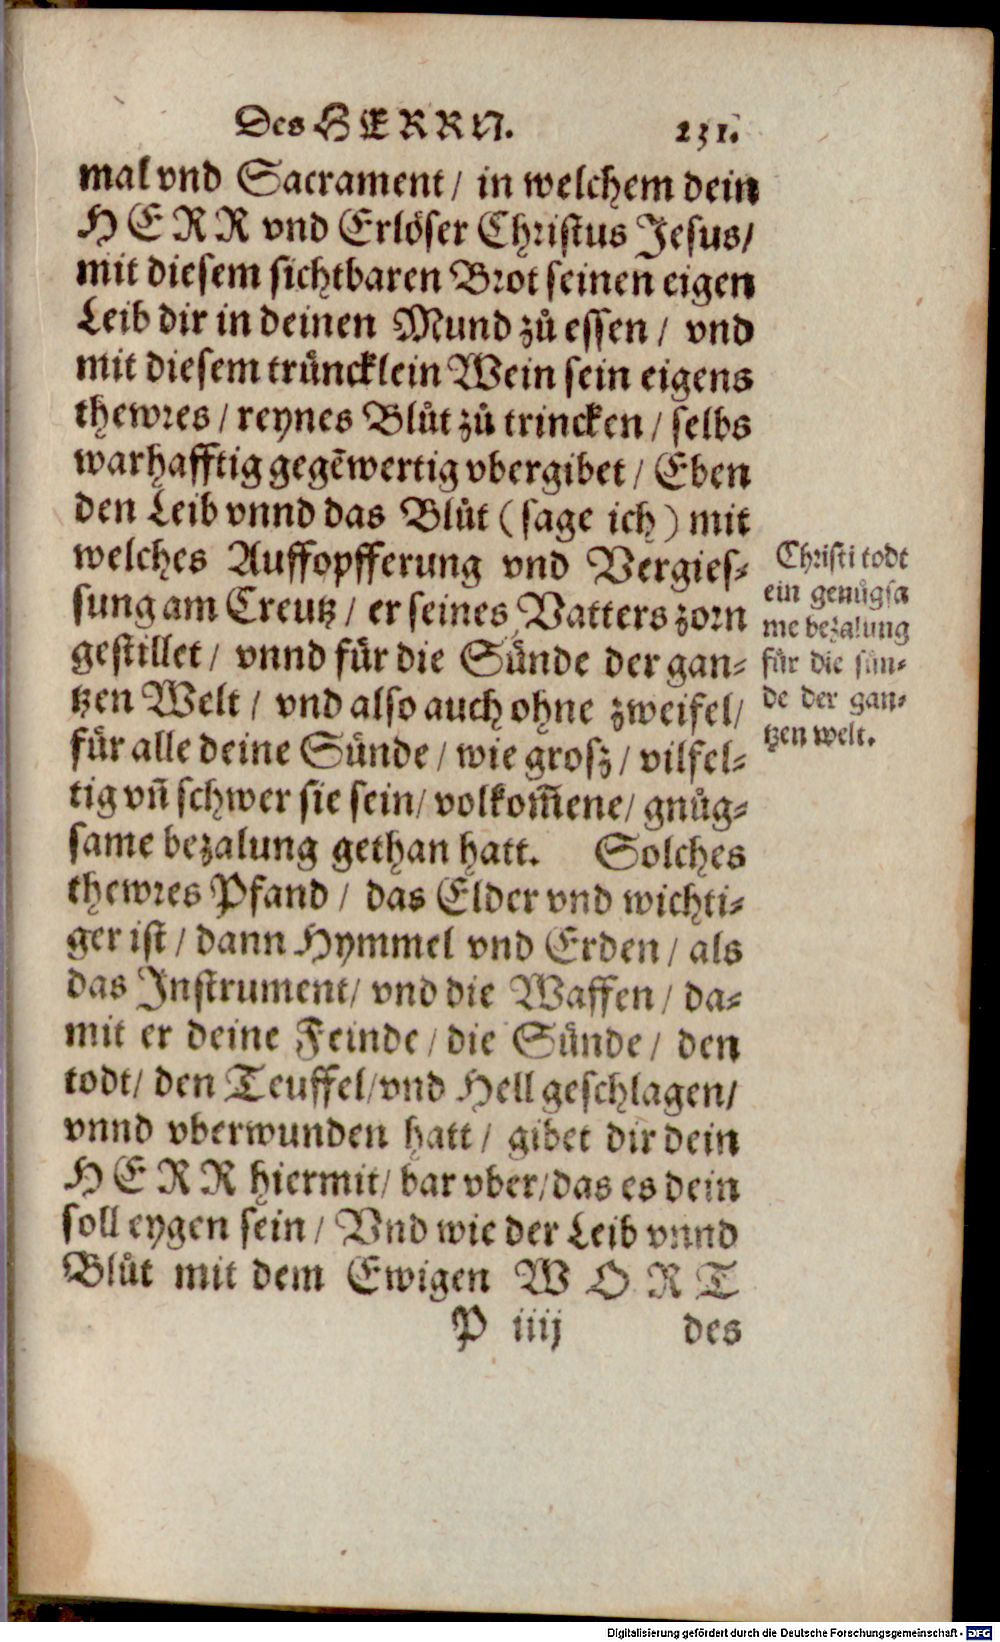 Des HERRN. 231.
mal vnd Sacrament/ in welchem dein
HERR vnd Erlöser Christus Jesus/
mit diesem sichtbaren Brot seinen eigen
Leib dir in deinen Mund zů essen/ vnd
mit diesem trüncklein Wein sein eigens
thewres/ reynes Blůt zů trincken/ selbs
warhafftig gegẽwertig vbergibet/ Eben
den Leib vnnd das Blůt (sage ich) mit
welches Auffopfferung vnd Vergies-
sung am Creutz/ er seines Vatters zorn
gestillet/ vnnd für die Sünde der gan-
tzen Welt/ vnd also auch ohne zweifel/
für alle deine Sünde/ wie grosz/ vilfel-
tig vñ schwer sie sein/ volkom̃ene/ gnůg-
same bezalung gethan hatt. Solches
thewres Pfand/ das Elder vnd wichti-
ger ist/ dann Hymmel vnd Erden/ als
das Instrument/ vnd die Waffen/ da-
mit er deine Feinde/ die Sünde/ den
todt/ den Teuffel/ vnd Hell geschlagen/
vnnd vberwunden hatt/ gibet dir dein
HERR hiermit/ bar vber/ das es dein
soll eygen sein/ Vnd wie der Leib vnnd
Blůt mit dem Ewigen WORT
P iiij des
Christi todt
ein genůgsa
me bezalung
für die sün-
de der gan-
tzen welt.
Digitalisierung gefördert durch die Deutsche Forschungsgemeinschaft - DFG